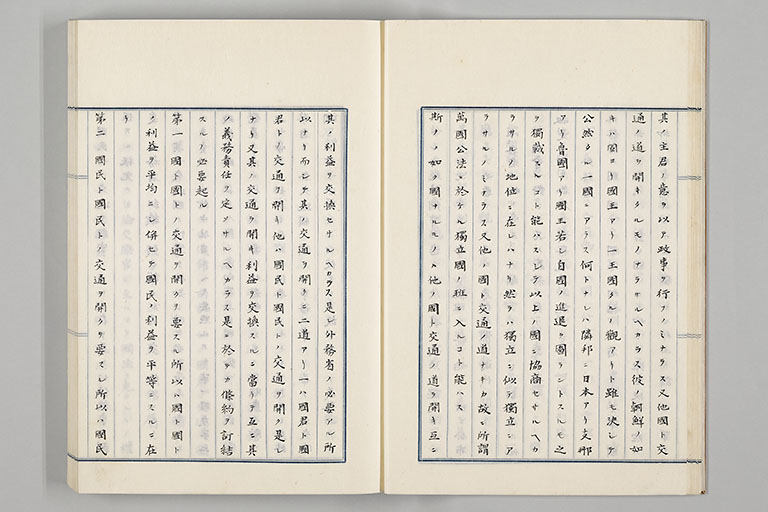 其ノ主君ノ意ヲ以テ政事ヲ行フノミナラス又他國ト交
通ノ道ヲ開キタルモノナラサルヘカラス彼ノ朝鮮ノ如
キハ固ヨリ國王アリ一王國タルノ觀アリト雖モ決シテ
公然タル一國ニアラス何トナレハ隣邦ニ日本アリ支那
アリ魯國アリ國王若シ自國ノ進退ヲ圖ラントスルモ之
ヲ獨裁スルコト能ハスシテ以上ノ國ニ協商セサルヘカ
ラサルノ地位ニ在レハナリ然ラハ獨立ニ似テ獨立ニア
ラサルノミナラス又他ノ國ト交通ノ道ナキカ故ニ所謂
萬國公法ニ於ケル獨立國ノ班ニ入ルコト能ハス
斯ノ如ク國ナルモノハ他ノ國ト交通ノ道ヲ開キ互ニ
其ノ利益ヲ交換セサルヘカラス是レ外務省ノ必要アル所
以ナリ而シテ其ノ交通ヲ開クニ二道アリ一ハ國君ト國
君トノ交通ヲ開キ他ハ國民ト國民トノ交通ヲ開ク是レ
ナリ又其ノ交通ヲ開キ利益ヲ交換スルニ當リテ互ニ其
ノ義務責任ヲ定メサルヘカラス是ニ於テカ條約ヲ訂結
スルノ必要起ル
第一 國ト國トノ交通ヲ開クヲ要スル所以ハ國ト國ト
ノ利益ヲ平均ニシ併セテ國民ノ利益ヲ平等ニスルニ在
リ
第二 國民ト國民トノ交通ヲ開クヲ要スル所以ハ國民